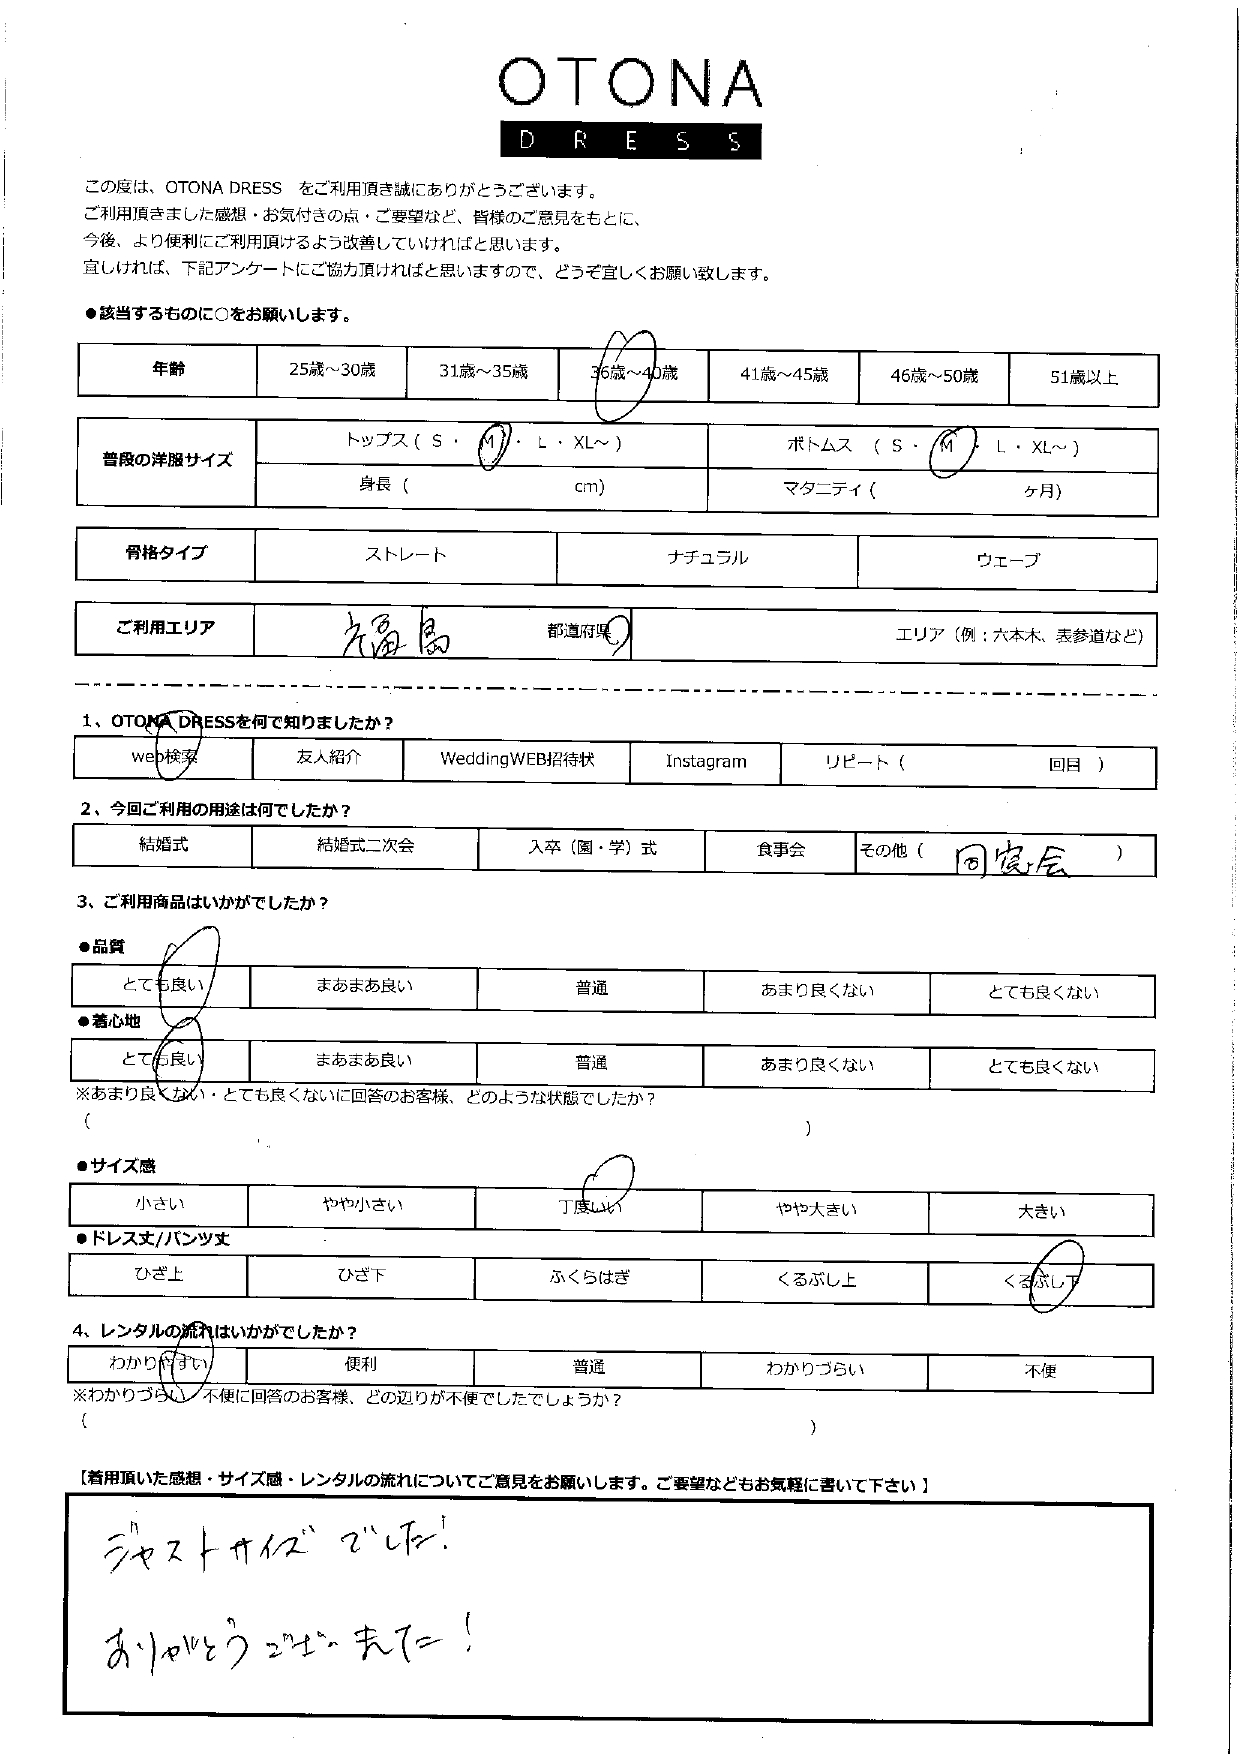 OTONA
DRESS
この度は、OTONA DRESS　をご利用頂き誠にありがとうございます。
ご利用頂きました感想・お気付きの点・ご要望など、皆様のご意見をもとに、
今後、より便利にご利用頂けるよう改善していければと思います。
宜しければ、下記アンケートにご協力頂ければと思いますので、どうぞ宜しくお願い致します。
●該当するものに○をお願いします。
年齢 25歳～30歳 31歳～35歳 36歳～40歳 41歳～45歳 46歳～50歳 51歳以上
普段の洋服サイズ トップス ( S ・ M ・ L ・ XL～ ) ボトムス ( S ・ M ・ L ・ XL～ )
身長 ( cm) マタニティ ( ヶ月)
骨格タイプ ストレート ナチュラル ウェーブ
ご利用エリア 福島 都道府県 エリア（例：六本木、表参道など）
1、OTONA DRESSを何で知りましたか？
web検索 友人紹介 WeddingWEB招待状 Instagram リピート ( 回目 )
2、今回ご利用の用途は何でしたか？
結婚式 結婚式二次会 入卒（園・学）式 食事会 その他 ( 同窓会 )
3、ご利用商品はいかがでしたか？
●品質
とても良い まあまあ良い 普通 あまり良くない とても良くない
●着心地
とても良い まあまあ良い 普通 あまり良くない とても良くない
※あまり良くない・とても良くないに回答のお客様、どのような状態でしたか？
( )
●サイズ感
小さい やや小さい 丁度いい やや大きい 大きい
●ドレス丈/パンツ丈
ひざ上 ひざ下 ふくらはぎ くるぶし上 くるぶし下
4、レンタルの流れはいかがでしたか？
わかりやすい 便利 普通 わかりづらい 不便
※わかりづらい／不便に回答のお客様、どの辺りが不便でしたでしょうか？
( )
【着用頂いた感想・サイズ感・レンタルの流れについてご意見をお願いします。ご要望などもお気軽に書いて下さい 】
ジャストサイズでした！
ありがとうございました！